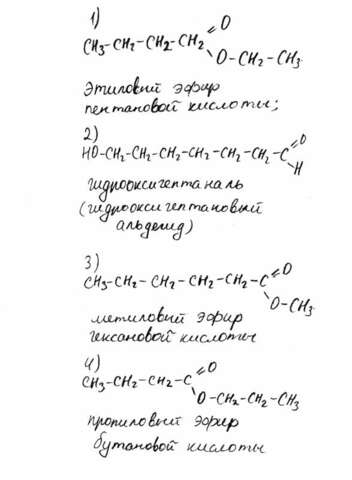 1)
CH3-CH2-CH2-CH2 =O
O-CH2-CH3
этиловый эфир
пентановой кислоты;
2)
HO-CH2-CH2-CH2-CH2-CH2-CH2-C =O
H
гидрооксигептаналь
(гидрооксигептановый
альдегид)
3)
CH3-CH2-CH2-CH2-CH2-C =O
O-CH3
метиловый эфир
гексановой кислоты
4)
CH3-CH2-CH2-C =O
O-CH2-CH2-CH3
пропиловый эфир
бутановой кислоты